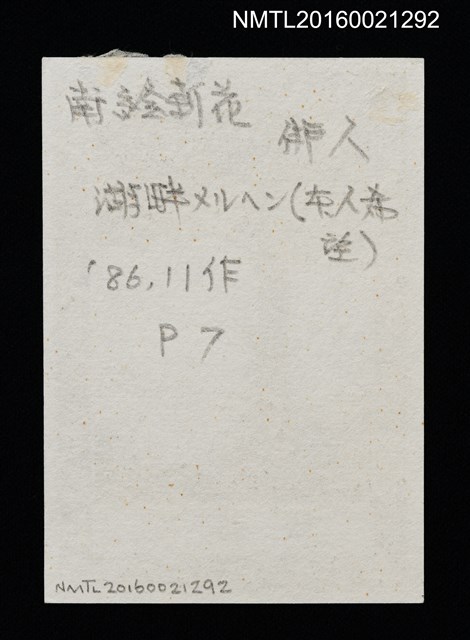 NMTL20160021292
南 新花
俳人
湖畔メルヘン(本人希
望)
'86.11作
P7
NMTL20160021292